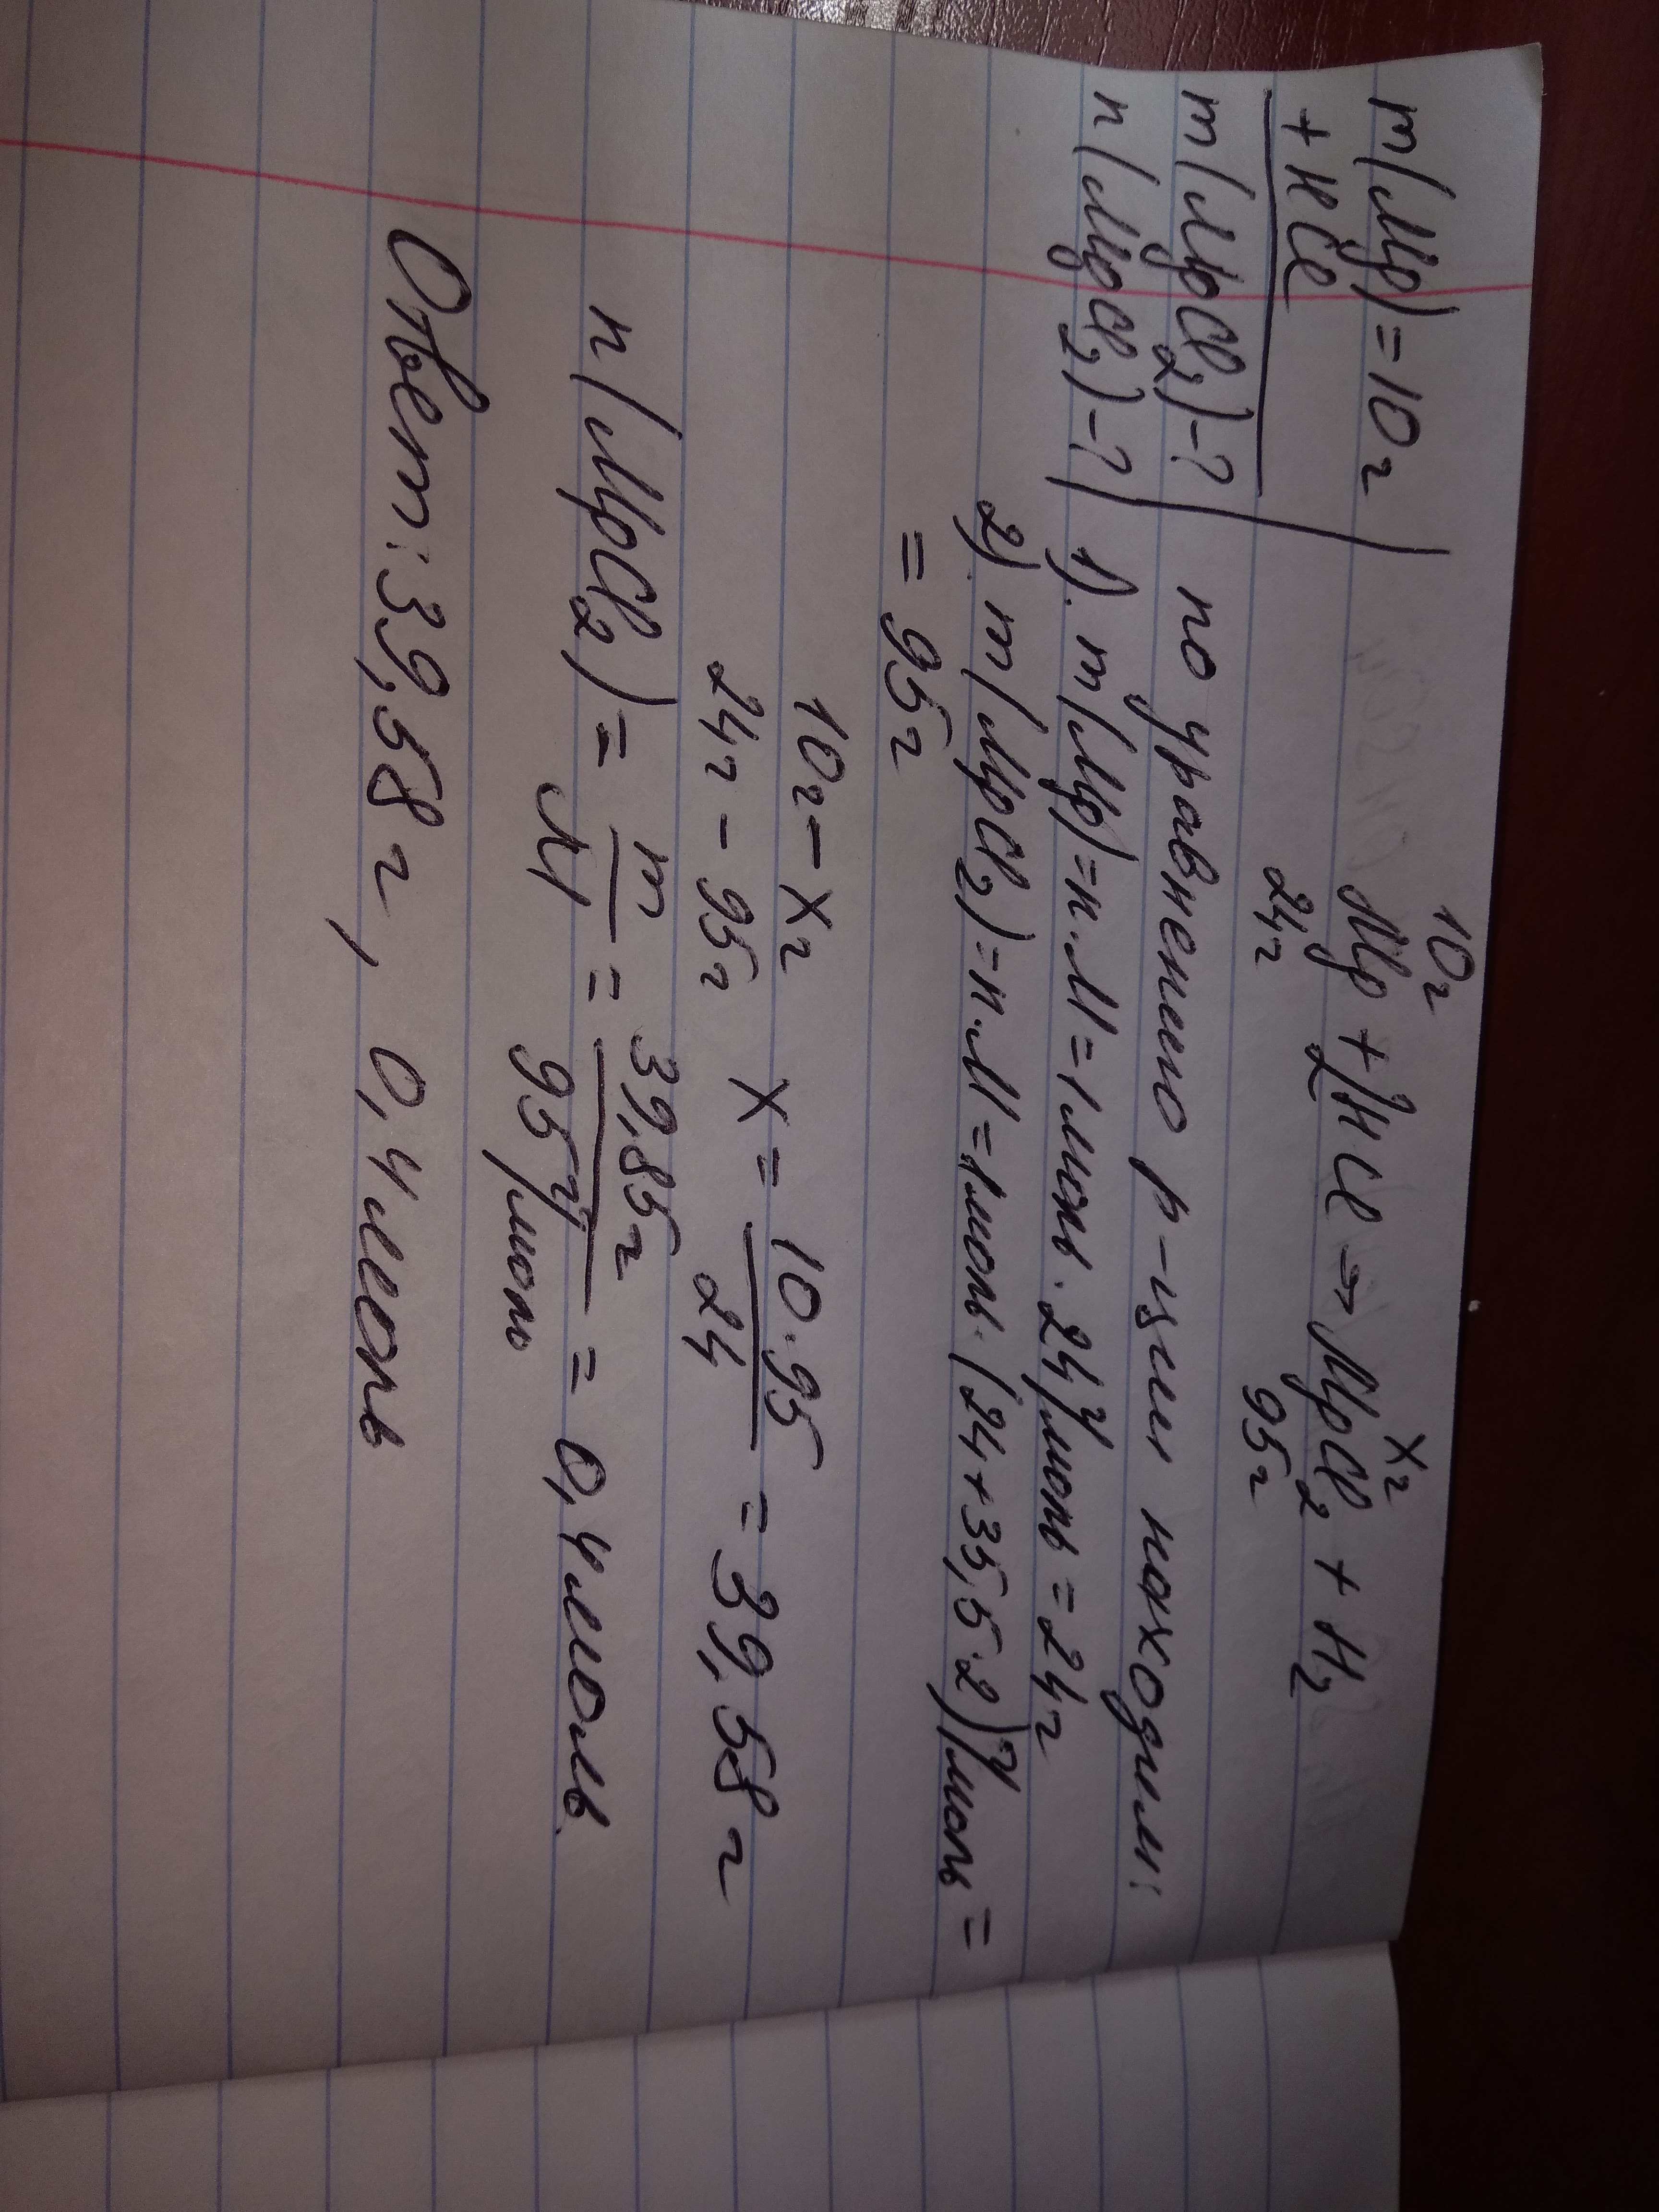 m(Mg)=10г
+ HCl
m(MgCl2)-?
n(MgCl2)-?
10г xг
Mg + 2HCl → MgCl2 + H2
24г 95г
по уравнению р-ции находим:
1). m(Mg)=n·M=1моль·24г/моль=24г
2). m(MgCl2)=n·M=1моль·(24+35,5·2)г/моль=
=95г
10г – xг
24г – 95г x = 10·95/24 = 39,58г
n(MgCl2) = m/M = 39,85г/95г/моль = 0,4моль.
Ответ: 39,58г, 0,4моль